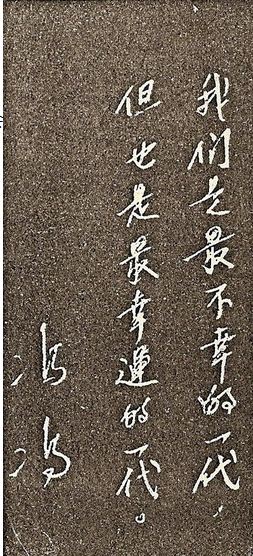 我们是最不幸的一代，
但也是最幸運的一代。
冯冯